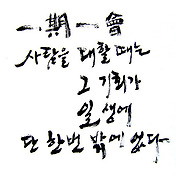 一期一會
사람을 대할 때는
그 기회가
일생에
단 한번 밖에 없다